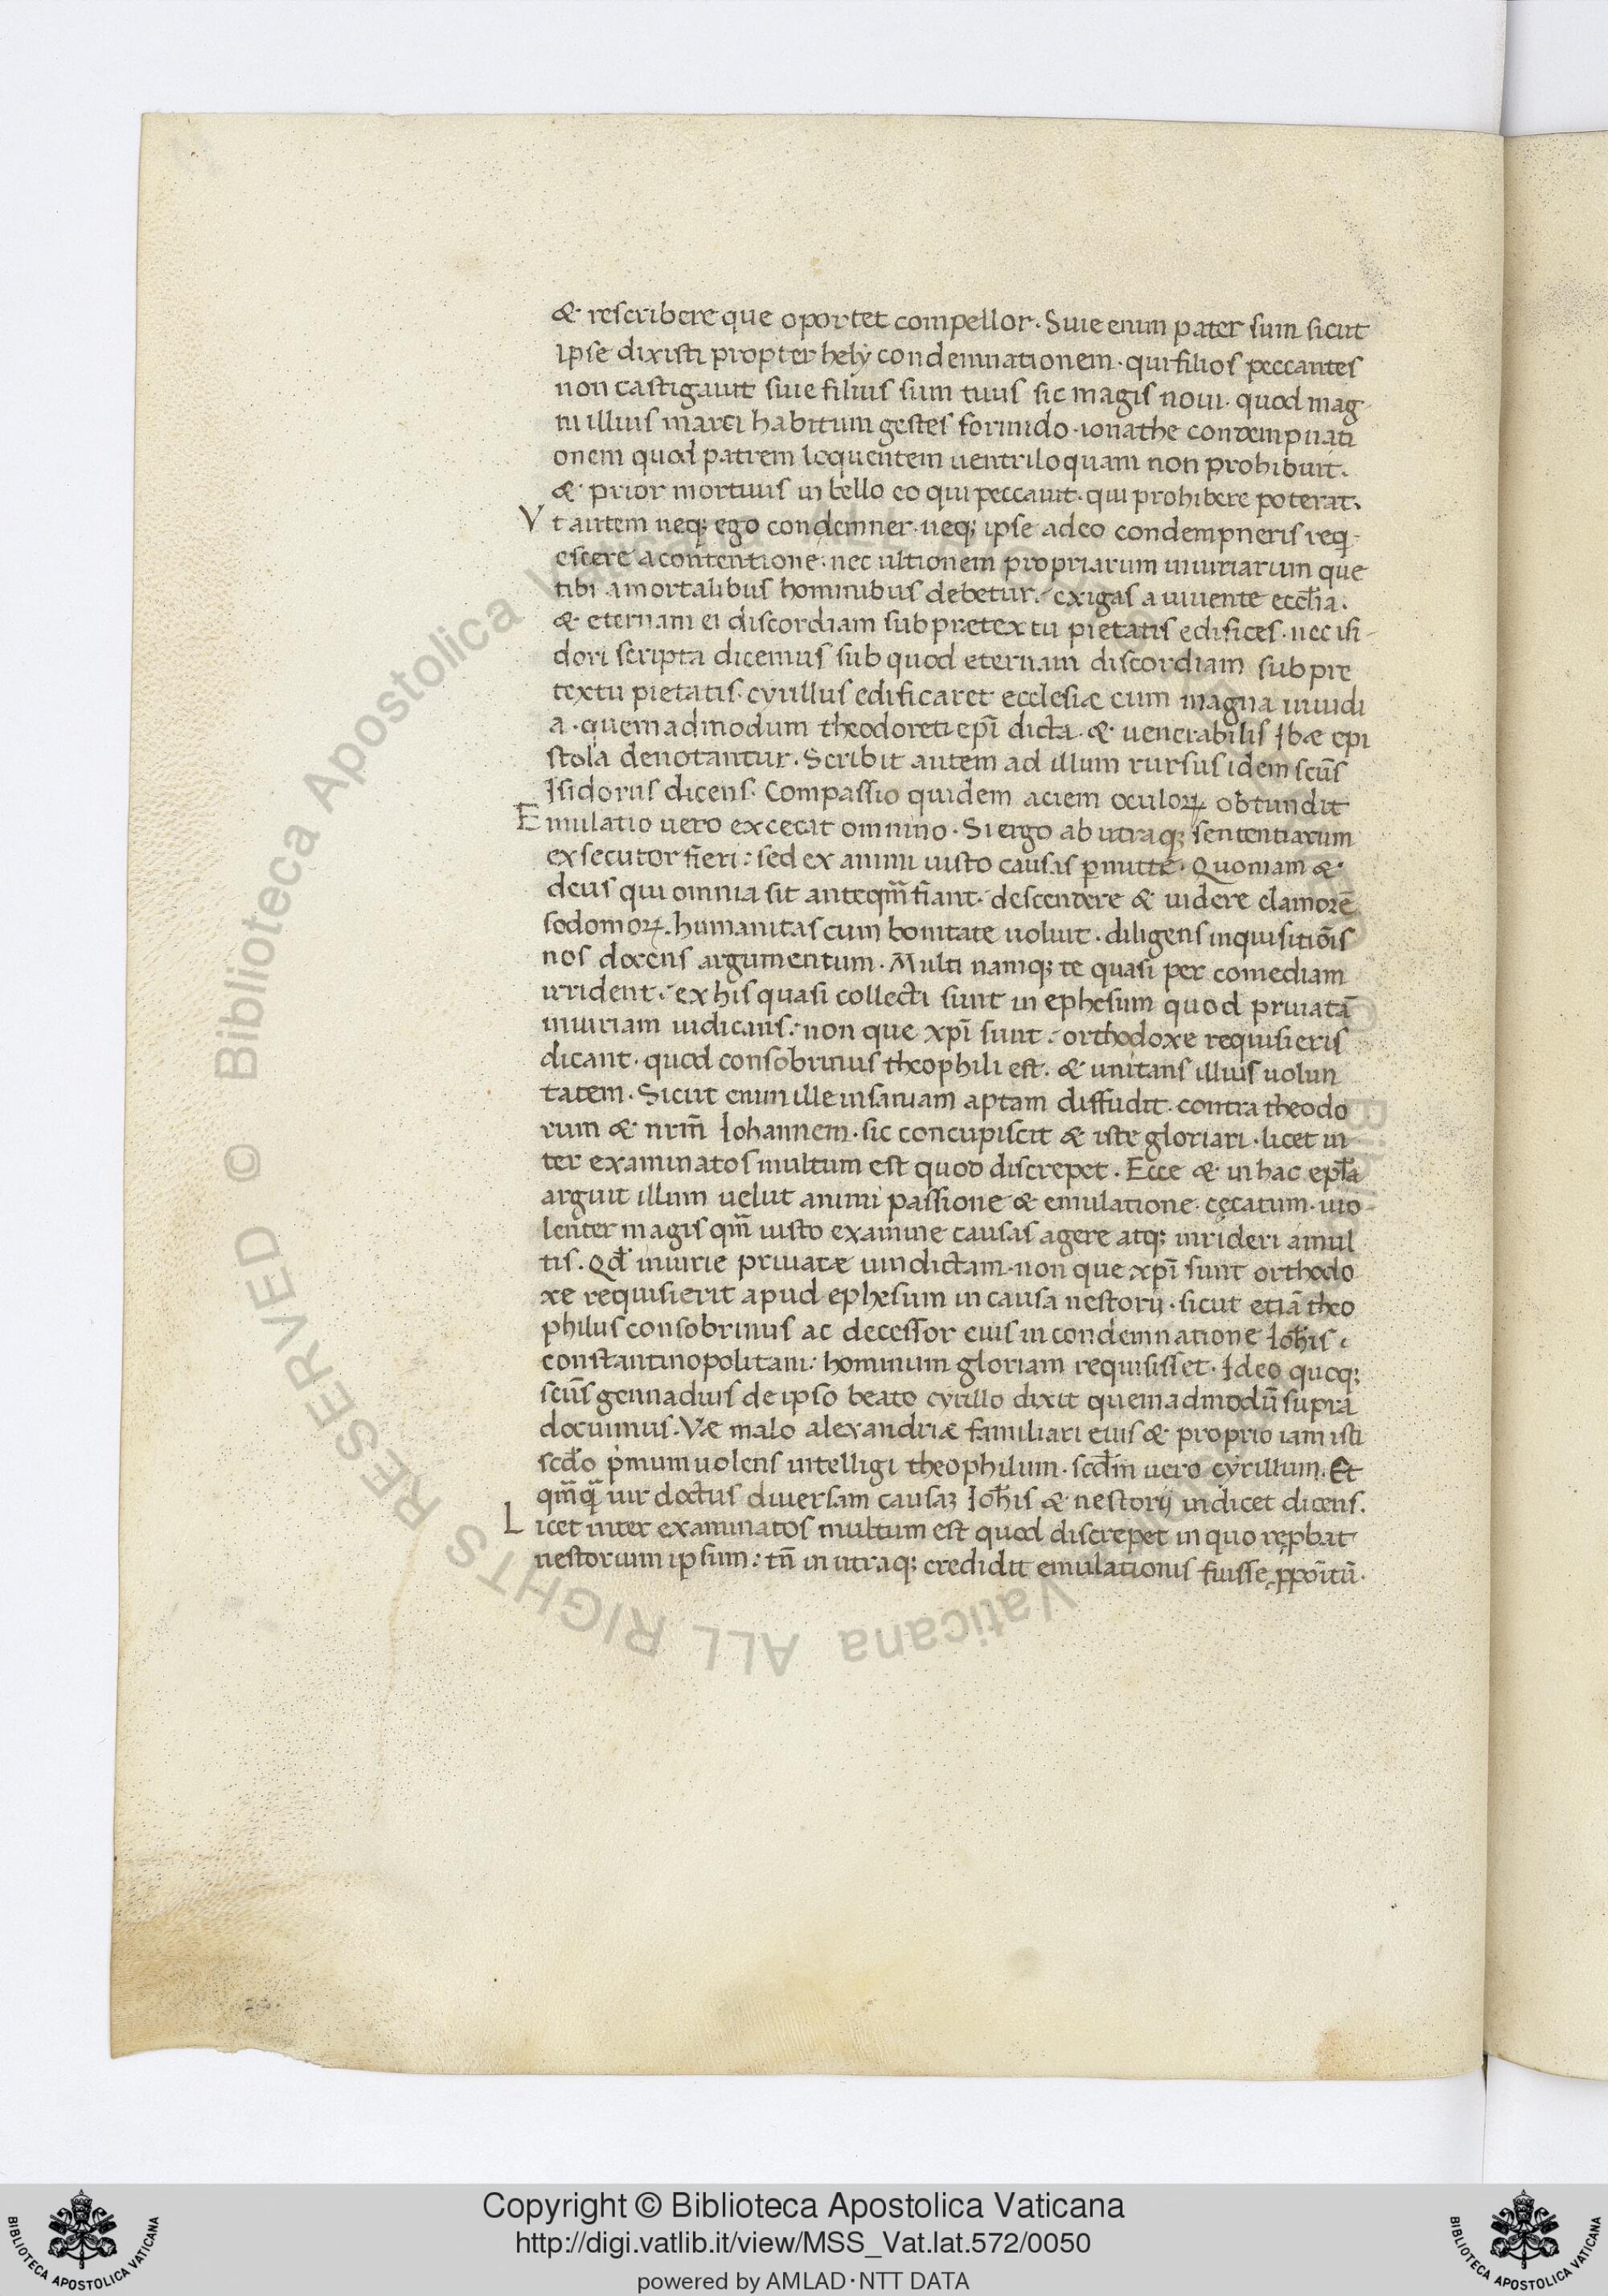 & rescribere que oportet compellor. Siue enim pater sum sicut
ipse dixisti propter hely condemnationem. qui filios peccantes
non castigauit siue filius sum tuus sic magis noui. quod mag
ni illius marci habitum gestes formido. ionathe contempnati
onem quod patrem loquentem uentriloquam non prohibuit.
& prior mortuus in bello eo qui peccauit. qui prohibere poterat.
Vt autem neq; ego condemner. neq; ipse a deo condempneris req̇
escere a contentione. nec ultionem propriarum iniuriarum que
tibi a mortalibus hominibus debetur. exigas a uiuente eccl̄ia.
& eternam ei discordiam sub pretextu pietatis edifices. nec isi-
dori scripta dicemus sub quod eternam discordiam sub pre
textu pietatis. cyrillus edificaret ecclesiæ cum magna inuidi
a. quemadmodum theodoreti ep̄i dicta. & uenerabilis Ibæ epi
stola denotantur. Scribit autem ad illum rursus idem sc̄us
Isidorus dicens. Compassio quidem aciem oculoꝝ obtundit
Emulatio uero excecat omnino. Si ergo ab utraq; sententiarum
exsecutor fieri: sed ex animi iusto causas ꝑmitte. Quoniam &
deus qui omnia sit anteqm̄ fiant. descendere & uidere clamorē
sodomoꝝ. humanitas cum bonitate uoluit. diligens inquisitiōis
nos docens argumentum. Multi namq; te quasi per comediam
irrident. ex his quasi collecti sunt in ephesum quod priuatā
iniuriam iudicans: non que xp̄i sunt. orthodoxe requisieris
dicant. quod consobrinus theophili est. & unitans illius uolun
tatem. Sicut enim ille insaniam aptam diffudit. contra theodo
rum & nr̄m Iohannem. sic concupiscit & iste gloriari. licet in
ter examinatos multum est quod discrepet. Ecce & in hac epl̄a
arguit illum uelut animi passione & emulatione. cęcatum. uio-
lenter magis qm̄ iusto examine causas agere atq; inrideri a mul
tis. Qd̄ iniurie priuatæ uindictam. non que xp̄i sunt orthodo
xe requisierit apud ephesum in causa nestorij. sicut etiā theo
philus consobrinus ac decessor eius in condemnatione Ioh̄is
constantinopolitani: hominum gloriam requisisset. Ideo quoq;
sc̄us gennadius de ipso beato cyrillo dixit quemadmodū supra
docuimus. Væ malo alexandriæ familiari eius & proprio iam isti
scd̄o p̄mum uolens intelligi theophilum. scd̄m uero cyrillum. Et
qm̄q̄ uir doctus diuersam causaꝫ Ioh̄is & nestorij indicet dicens.
Licet inter examinatos multum est quod discrepet in quo rep̱bat
nestorium ipsum: tn̄ in utraq; credidit emulationis fuisse ꝓpoītū.
© Biblioteca Apostolica Vaticana ALL RIGHTS RESERVED
Copyright © Biblioteca Apostolica Vaticana
http://digi.vatlib.it/view/MSS_Vat.lat.572/0050
powered by AMLAD·NTT DATA
BIBLIOTECA APOSTOLICA VATICANA
BIBLIOTECA APOSTOLICA VATICANA